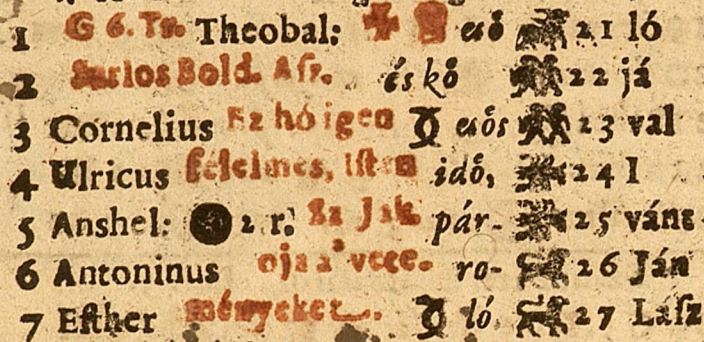 1 G 6. Tr. Theobal: esö 21 ló
2 Sarlos Bold. Aſz. és kö 22 já
3 Cornelius Ez hó igen esös 23 val
4 Ulricus félelmes, Iſten idö, 24 I
5 Anshel: 2 r. Sz Jak. pár- 25 vánt
6 Antoninus oja a' vete- ro- 26 Ján
7 Eſther ményeket. ló 27 Láſz